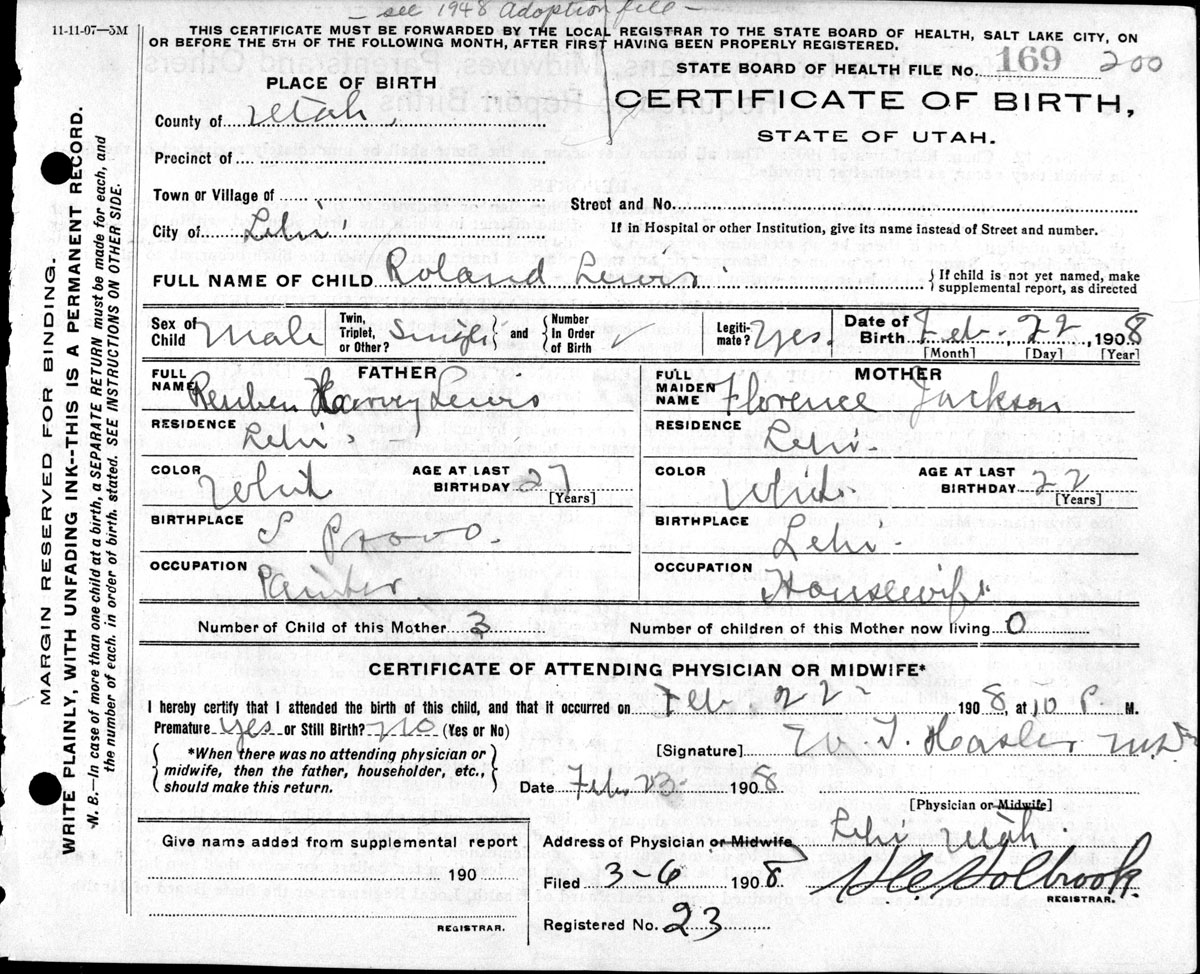 - see 1948 Adoption file -
11-11-07—5M
THIS CERTIFICATE MUST BE FORWARDED BY THE LOCAL REGISTRAR TO THE STATE BOARD OF HEALTH, SALT LAKE CITY, ON
OR BEFORE THE 5TH OF THE FOLLOWING MONTH, AFTER FIRST HAVING BEEN PROPERLY REGISTERED.
STATE BOARD OF HEALTH FILE No. 169 200
PLACE OF BIRTH
CERTIFICATE OF BIRTH,
STATE OF UTAH.
County of Utah
Precinct of
Town or Village of
Street and No.
City of Lehi
If in Hospital or other Institution, give its name instead of Street and number.
FULL NAME OF CHILD Roland Lewis { If child is not yet named, make supplemental report, as directed
Sex of Child Male Twin, Triplet, or Other? Single and Number In Order of Birth Legiti-mate? Yes. Date of Birth Feb. 22, 1908
[Month] [Day] [Year]
FATHER
FULL NAME Reuben Harvey Lewis
RESIDENCE Lehi.
COLOR White AGE AT LAST BIRTHDAY 27 [Years]
BIRTHPLACE Provo.
OCCUPATION Painter
MOTHER
FULL MAIDEN NAME Florence Jackson
RESIDENCE Lehi.
COLOR White. AGE AT LAST BIRTHDAY 22 [Years]
BIRTHPLACE Lehi.
OCCUPATION Housewife
Number of Child of this Mother 3 Number of children of this Mother now living 0
CERTIFICATE OF ATTENDING PHYSICIAN OR MIDWIFE*
I hereby certify that I attended the birth of this child, and that it occurred on Feb. 22 1908, at 10 P. M.
Premature yes or Still Birth? no (Yes or No)
*When there was no attending physician or
midwife, then the father, householder, etc.,
should make this return.
[Signature] W. T. Hasler M.D.
Date Feb 23 1908
[Physician or Midwife]
Give name added from supplemental report
190
REGISTRAR.
Address of Physician or Midwife Lehi, Utah.
Filed 3-6 1908 Holbrook
REGISTRAR.
Registered No. 23
MARGIN RESERVED FOR BINDING.
WRITE PLAINLY, WITH UNFADING INK--THIS IS A PERMANENT RECORD.
N. B.—In case of more than one child at a birth, a SEPARATE RETURN must be made for each, and
the number of each, in order of birth, stated. SEE INSTRUCTIONS ON OTHER SIDE.